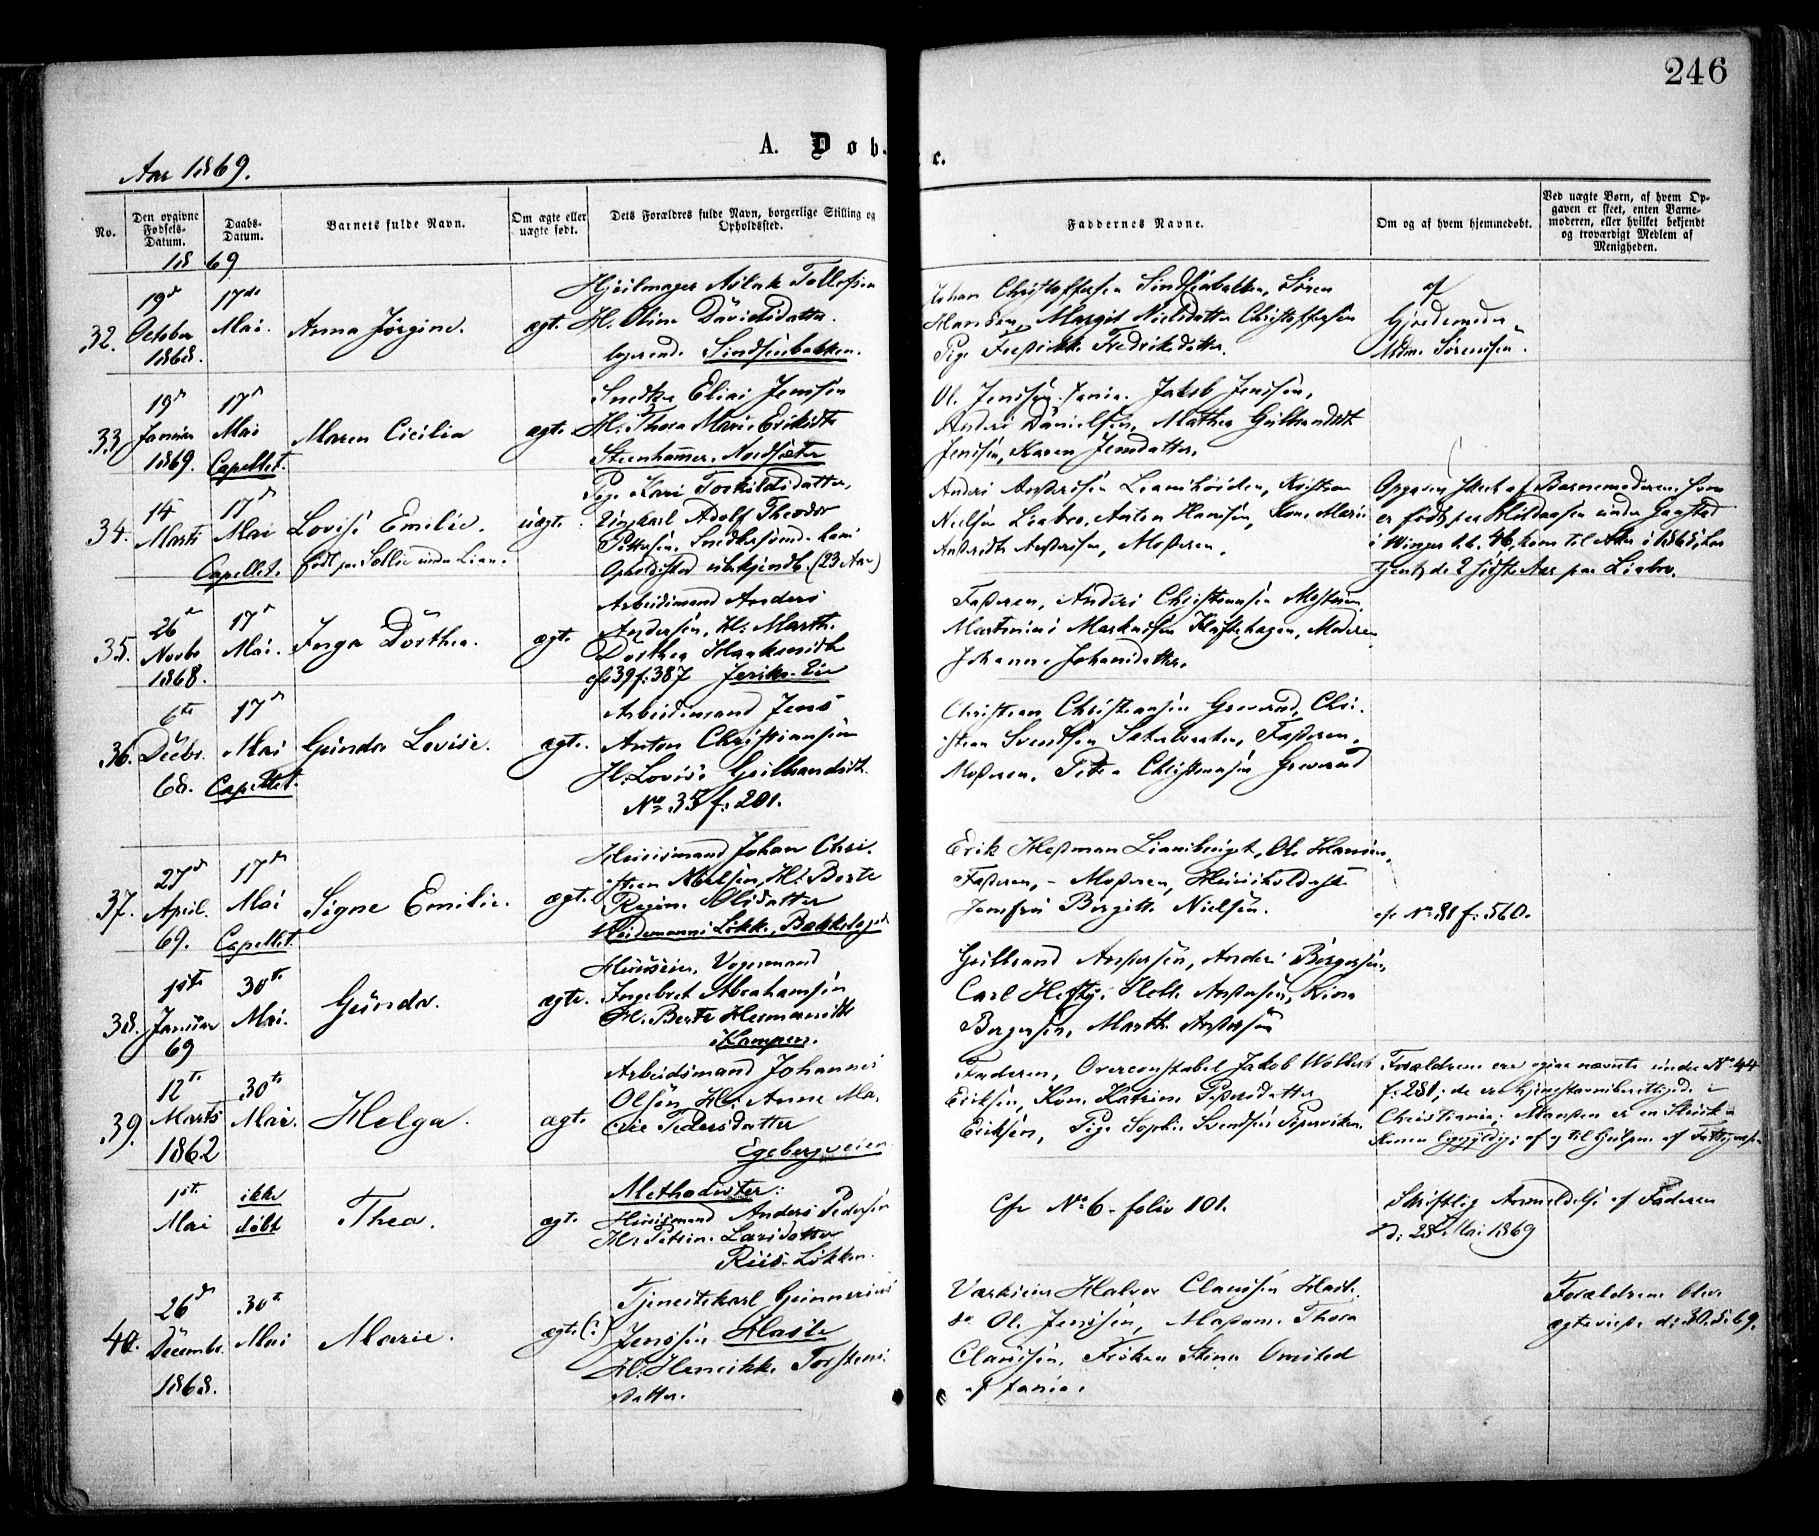 246
A. Døbte.
Aar 1869.
No.
Den opgivne Fødsels-Datum.
Daabs-Datum.
Barnets fulde Navn.
Om ægte eller uægte født.
Dets Forældres fulde Navn, borgerlige Stilling og Opholdssted.
Faddernes Navne.
Om og af hvem hjemmedøbt.
Ved uægte Børn, af hvem Op-
gaven er skeet, enten Barne-
moderen, eller hvilket bekjendt
og troværdigt Medlem af
Menigheden.
1869
32.
19de October 1868.
17de Mai.
Anna Jørgine.
ægt.
Aslak Tollefsen
H. Oline Davidsdatter
logerende Sindsenbakken.
Johan Christoffersen Sindsenbakken, Søren
Hansen, Margit Nielsdatter Christoffersen
Pige Fredrikke Fredriksdatter.
af
Gjordemoder
Mdm. Sørensen.
33.
19d Januar 1869.
17d Mai Capellet.
Maren Cicilia
ægt.
Snedker Elias Jenssen
H. Thora Marie Eriksdt
Steenhammer. Nordsæter
Ol. Jenssen. Jakob Jenssen,
Anders Danielsen, Mathea Gulbrandsdt
Jenssen, Karen Jensdatter.
34.
14 Marts
17d Mai Capellet.
Lovise Emilie.
født paa Sollie under Lian.
uægt.
Pige Kari Torkildsdatter,
Ungkarl Adolf Theodor
Pettersen, Snedkersvend. hans
Opholdssted ubekjendt. (23 Aar)
Anders Andersen Lianshøiden, Kristian
Nielsen Liabro, Anton Hansen, Kone Marie
Andersdt Andersen, Moderen.
Opgaven skeet af Barnemoderen, som
er født paa under
i Winger 46, kom til Aker i 1865, har
tjent de 2 sidste Aar paa Liabro.
35.
26d Novbr 1868.
17d Mai.
Inga Dorthea.
ægt.
Arbeidsmand Anders
Andersen, H. Marthe
Dorthea Haaknsdt
cfr 39 f: 387 Jeriko. Eie
Faderen, Anders Christiansen
Martinius Markussen Kloftehagen, Moderen,
Johanne Johansdatter.
36.
6te Decbr. 68.
17d Mai Capellet.
Gunda Lovise.
ægt.
Arbeidsmand Jens
Anton Christiansen
H. Lovise Gulbrandsdt.
No 35 f: 201.
Christian Christiansen Grevrud, Chri-
stian Svendsen Sæterbraaten, Faderen,
Moderen, Petra Christiansen Grevrud
37.
27d April. 69.
17d Mai Capellet.
Signe Emilie.
ægt.
Huusmand Johan Chri-
stian Nielsen, H. Berte
Regine Olsdatter
Heidemanns Løkke, Bækkelaget
Erik Hofman Liansbraget, Ole Hansen,
Faderen, - Moderen,
Jomfru Birgitte Nielsen.
cfr No 88 f: 560.
38.
1ste Januar 69
30te Mai.
Gunda.
ægte.
Huuseier, Vognmand
Ingebret Abrahamsen
H. Berte Hermansdt
Kampen.
Gulbrand Andersen, Anders Birgersen,
Carl Hefty, Helle Andersen, Rina
Borgersen, Marthe Andersen
39.
12te Marts 1862
30te Mai.
Helga.
ægt.
Arbeidsmand Johannes
Olsen, H. Anne Ma-
rie Pedersdatter
Egebergveien
Faderen, Overconstabel Jakob Wollert
Eriksen, Kone Katrine Pedersdatter
Eriksen, Pige Sophie Svendsen Pipervika.
Forældrene ere ogsaa nævnte under No 44
f: 281; de er hjemstavnsberettigede i
Christiania; Manden er en
Konen af og til Hjælpe af
1ste Mai
ikke døbt
Thea.
ægt.
Methodister:
Huusmand Anders Pedersen
H. Petrine Larsdatter
Riis-Løkken.
Cfr No 6 - folio 101.
Skriftlig Anmeldelse af Faderen
d: 28 Mai 1869
40.
26d Decembr. 1868.
30te Mai
Marie.
ægte (:)
Tjenestekarl Gunnerius
Jenssen Hasle
H. Henrikke Torstens-
datter.
Værkeier Halvor Claussen Hasle,
Ole Jenssen, Madame Thora
Claussen, Frøken Stina Omsted
af
Forældrene blev
ægteviede d: 30.5.69.